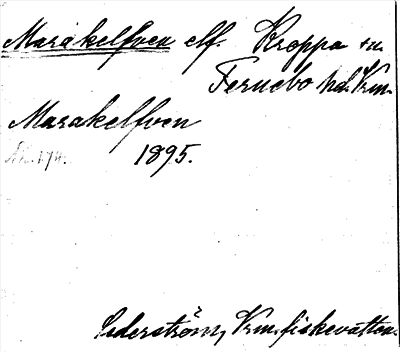 Marakelfven elf. Kroppa sn.
Fernebo hd. Vrm.
Marakelfven
1895.
Cederström, Vrm. fiskevatten.